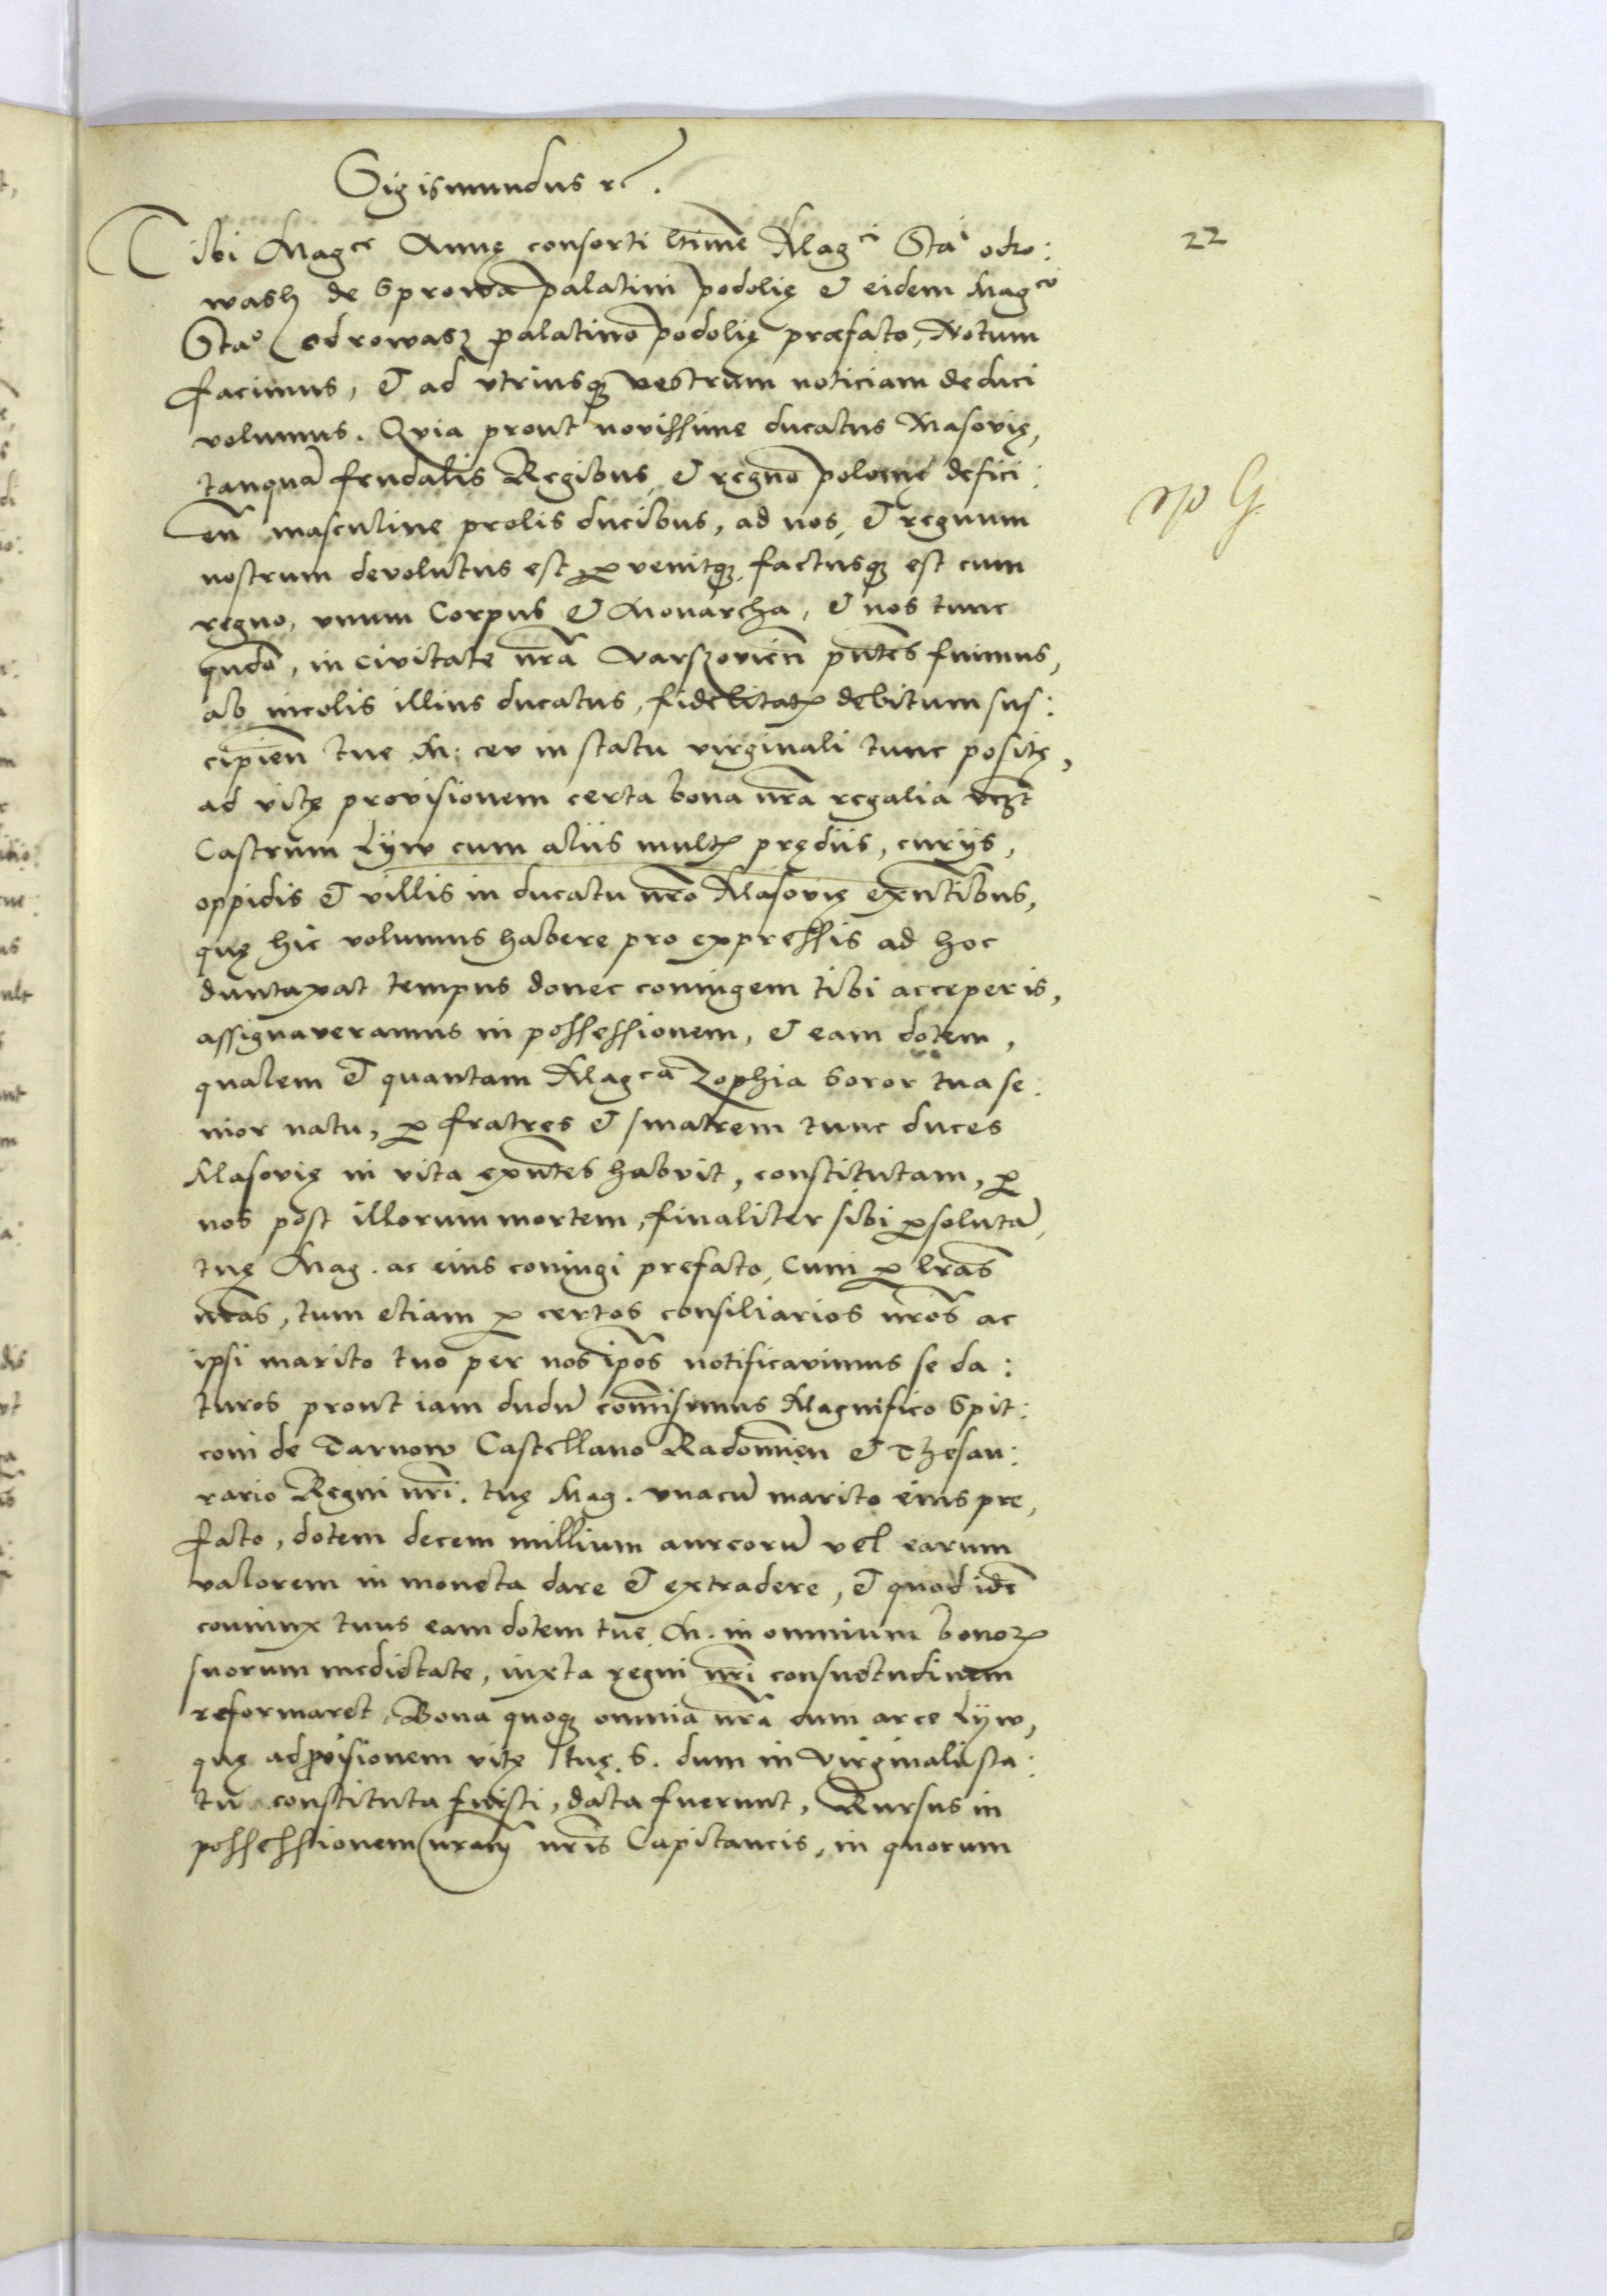 Sigismundus rc.
22
Tibi Magce Annę consorti ltime Magci Stai odro:
wasz de Sprowa palatini podolię et eidem Magco
Stao odrowasz palatino podolię præfato, Notum
facimus, et ad vtriusq vestrum noticiam deduci
volumus. Qvia prout novissime ducatus Masovię,
tanqua feudalis Regibus, et regno polonię defici:
en masculine prolis ducibus, ad nos, et regnum
np G.
nostrum devolutus est p venitq, factusq est cum
regno, vnum Corpus et Monarcha, et nos tunc
qudo, in civitate nra Varszovien pntes fuimus,
ab incolis illius ducatus, fidelitatis debitum sus:
cipien tue M: ceu in statu virginali tunc positę,
ad vitę provisionem certa bona nra regalia vczt
Castrum Lyw cum aliis multis prędiis, curijs,
oppidis et villis in ducatu nro Masovię exntibus,
quę hic volumus habere pro expressis ad hoc
duntaxat tempus donec coniugem tibi acceperis,
assignaveramus in possessionem, et eam dotem,
qualem et quantam Magca Zophia soror tua se:
nior natu, p fratres et matrem tunc duces
Masovię in vita exntes habvit, constitutam, p
nos post illorum mortem, finaliter sibi psoluta,
tuę Mag. ac eius coniugi prefato, Cum p lras
nras, tum etiam p certos consiliarios nros ac
ipsi marito tuo per nos ipos notificavimus se da:
turos prout iam dudu comisimus Magnifico Spit:
coni de Tarnow Castellano Radomien et Thesau:
rario Regni nri. tuę Mag. vnacu marito eius pre,
fato, dotem decem millium aureoru vel earum
valorem in moneta dare et extradere, et quod ide
coniunx tuus eam dotem tue M. in omnium bonorum
suorum medietate, iuxta regni nri consuetudinem
reformaret, Bona quoq omnia nra cum arce Lyw,
quę ad pvisionem vitę tuę. S. dum in virginali sta:
tu constituta fuisti, data fuerunt, Rursus in
possessionem nram nris Capitaneis, in quorum